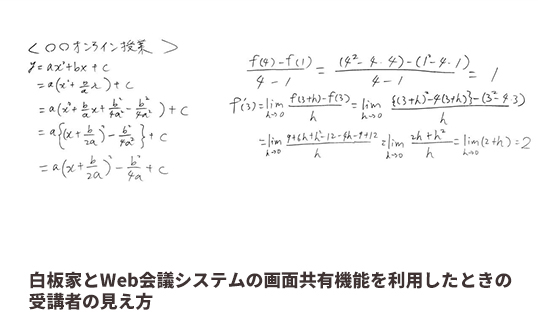 ＜〇〇オンライン授業＞
y = ax² + bx + c
= a(x² + b/a x) + c
= a(x² + b/a x + b²/4a² − b²/4a²) + c
= a{(x + b/2a)² − b²/4a²} + c
= a(x + b/2a)² − b²/4a + c
f(4)−f(1) / 4−1 = (4²−4・4)−(1²−4・1) / 4−1 = 1
f'(3) = lim h→0 f(3+h)−f(3) / h = lim h→0 {(3+h)²−4(3+h)}−(3²−4・3) / h
= lim h→0 9+6h+h²−12−4h−9+12 / h = lim h→0 2h+h² / h = lim h→0 (2+h) = 2
白板家とWeb会議システムの画面共有機能を利用したときの
受講者の見え方